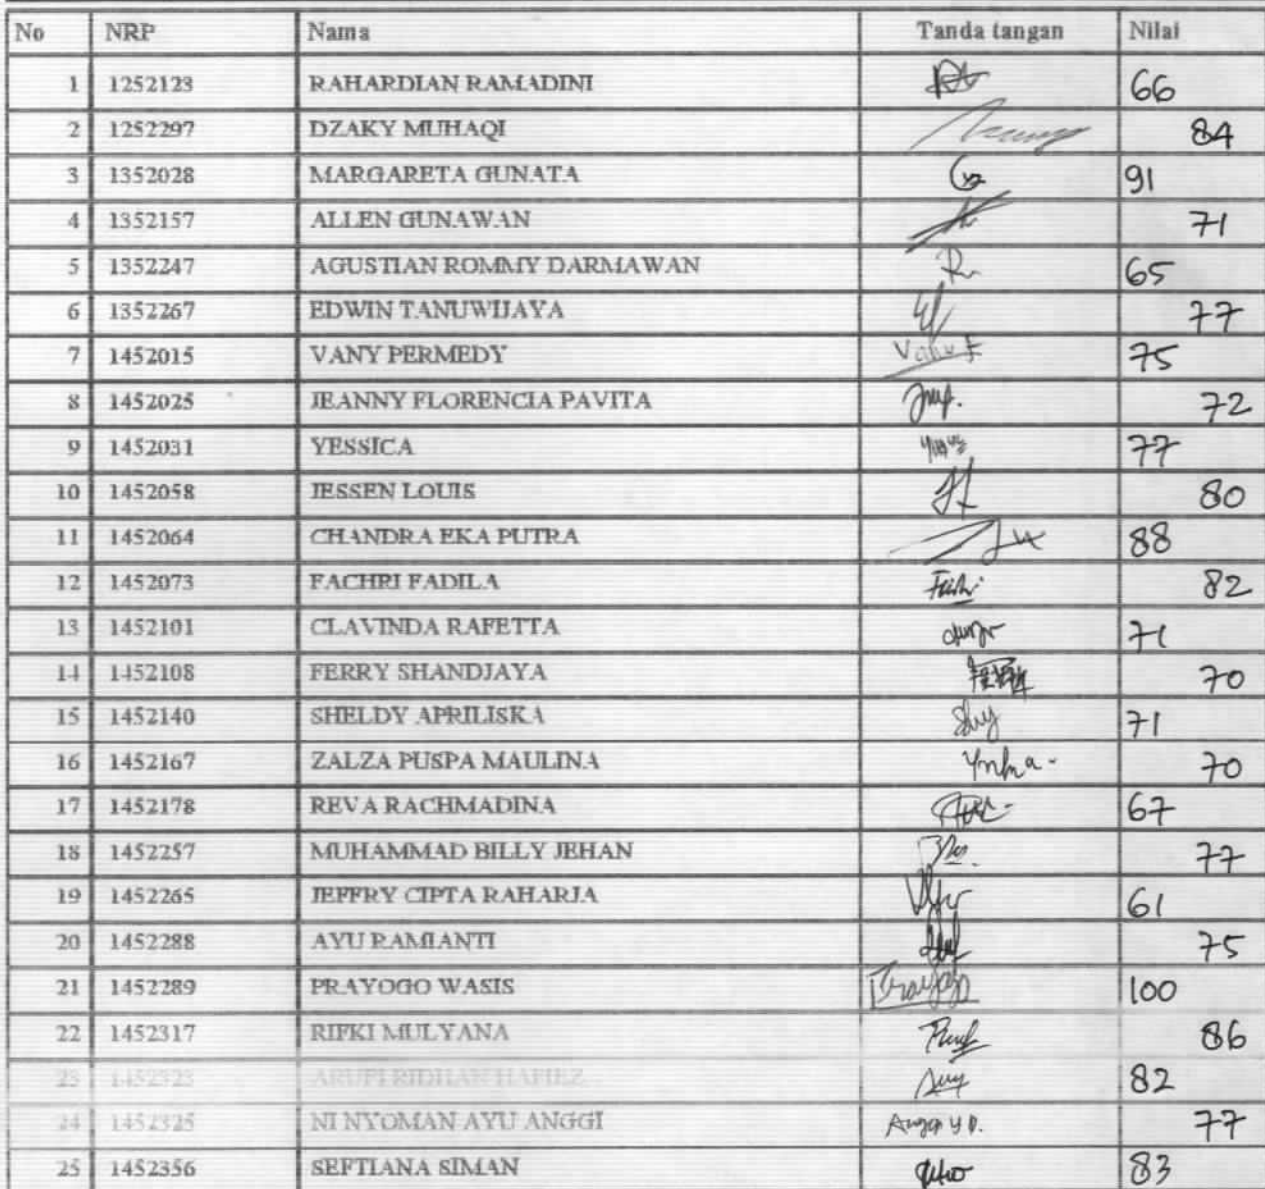 No NRP Nama Tanda tangan Nilai
1 1252123 RAHARDIAN RAMADINI 66
2 1252297 DZAKY MUHAQI 84
3 1352028 MARGARETA GUNATA 91
4 1352157 ALLEN GUNAWAN 71
5 1352247 AGUSTIAN ROMMY DARMAWAN 65
6 1352267 EDWIN TANUWIJAYA 77
7 1452015 VANY PERMEDY 75
8 1452025 JEANNY FLORENCIA PAVITA 72
9 1452031 YESSICA 77
10 1452058 JESSEN LOUIS 80
11 1452064 CHANDRA EKA PUTRA 88
12 1452073 FACHRI FADILA 82
13 1452101 CLAVINDA RAFETTA 71
14 1452108 FERRY SHANDJAYA 70
15 1452140 SHELDY APRILISKA 71
16 1452167 ZALZA PUSPA MAULINA 70
17 1452178 REVA RACHMADINA 67
18 1452257 MUHAMMAD BILLY JEHAN 77
19 1452265 JEFFRY CIPTA RAHARJA 61
20 1452288 AYU RAMIANTI 75
21 1452289 PRAYOGO WASIS 100
22 1452317 RIFKI MULYANA 86
23 1452323 RIDHAN HAFIEZ 82
24 1452325 NI NYOMAN AYU ANGGI 77
25 1452356 SEFTIANA SIMAN 83